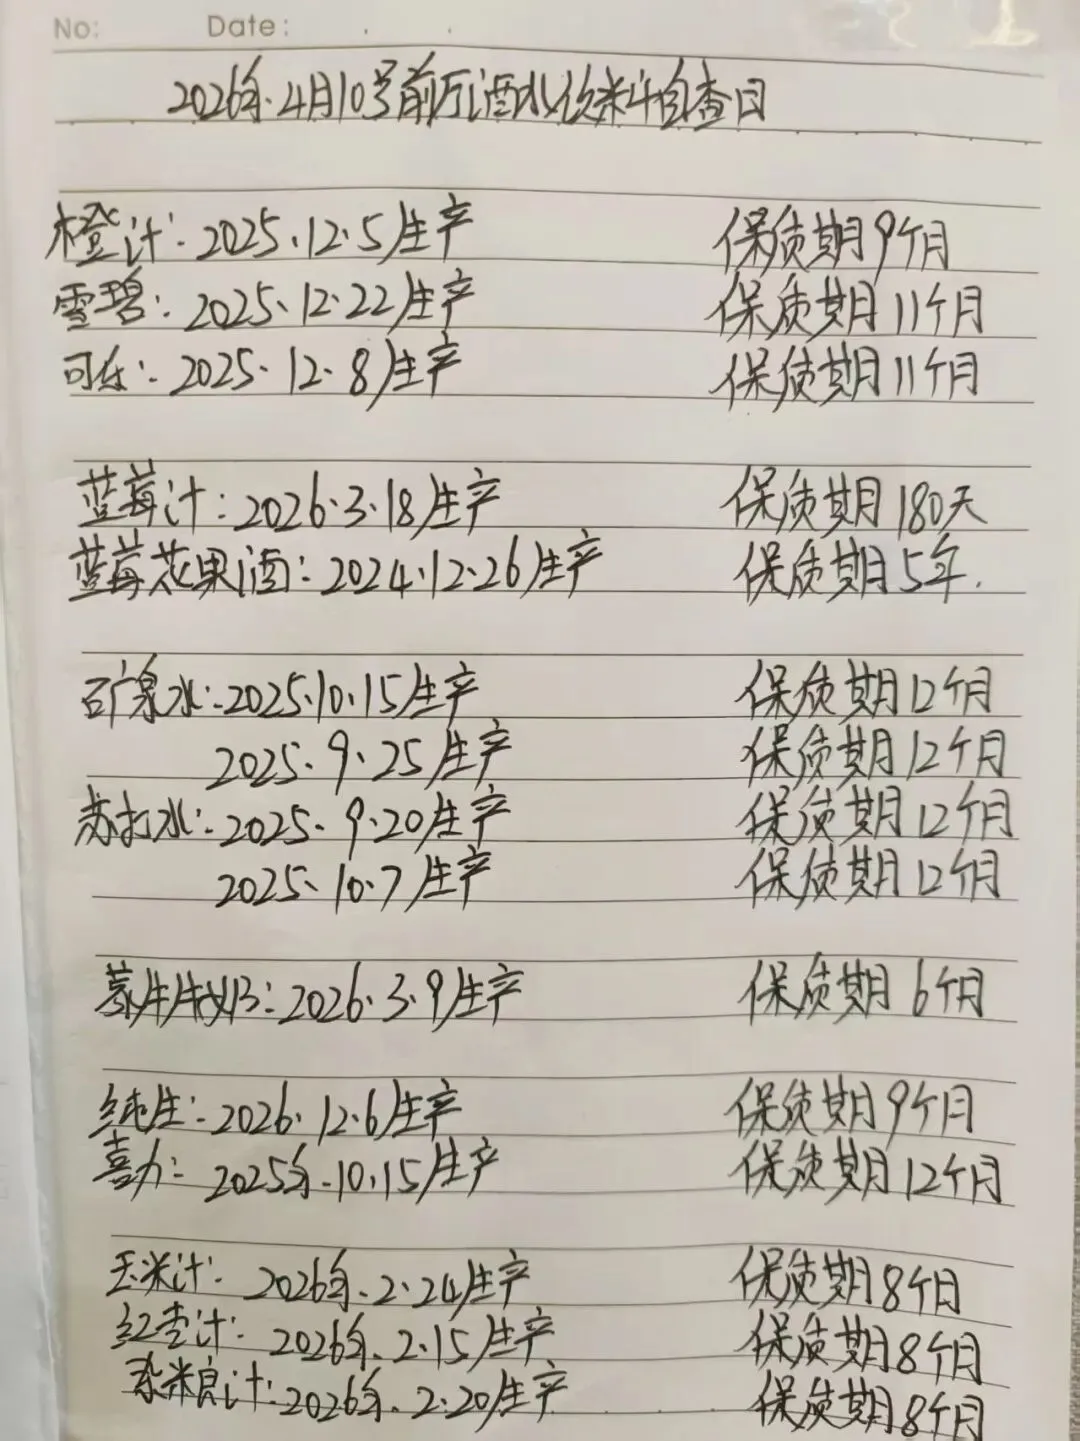 No:    Date:
2026年.4月10号前厅酒水饮料自查日
橙汁: 2025.12.5/生产 保质期9个月
雪碧: 2025.12.22/生产 保质期11个月
可乐: 2025.12.8/生产 保质期11个月
蓝莓汁: 2026.3.18/生产 保质期180天
蓝莓花果酒: 2024.12.26/生产 保质期5年.
矿泉水: 2025.10.15/生产 保质期12个月
2025.9.25/生产 保质期12个月
苏打水: 2025.9.20/生产 保质期12个月
2025.10.7/生产 保质期12个月
2026.3.9/生产 保质期6个月
纯生: 2026.12.6/生产 保质期9个月
喜力: 2025年.10.15/生产 保质期12个月
玉米汁: 2026年.2.24/生产 保质期8个月
红枣汁: 2026年.2.15/生产 保质期8个月
杂粮汁: 2026年.2.20/生产 保质期8个月